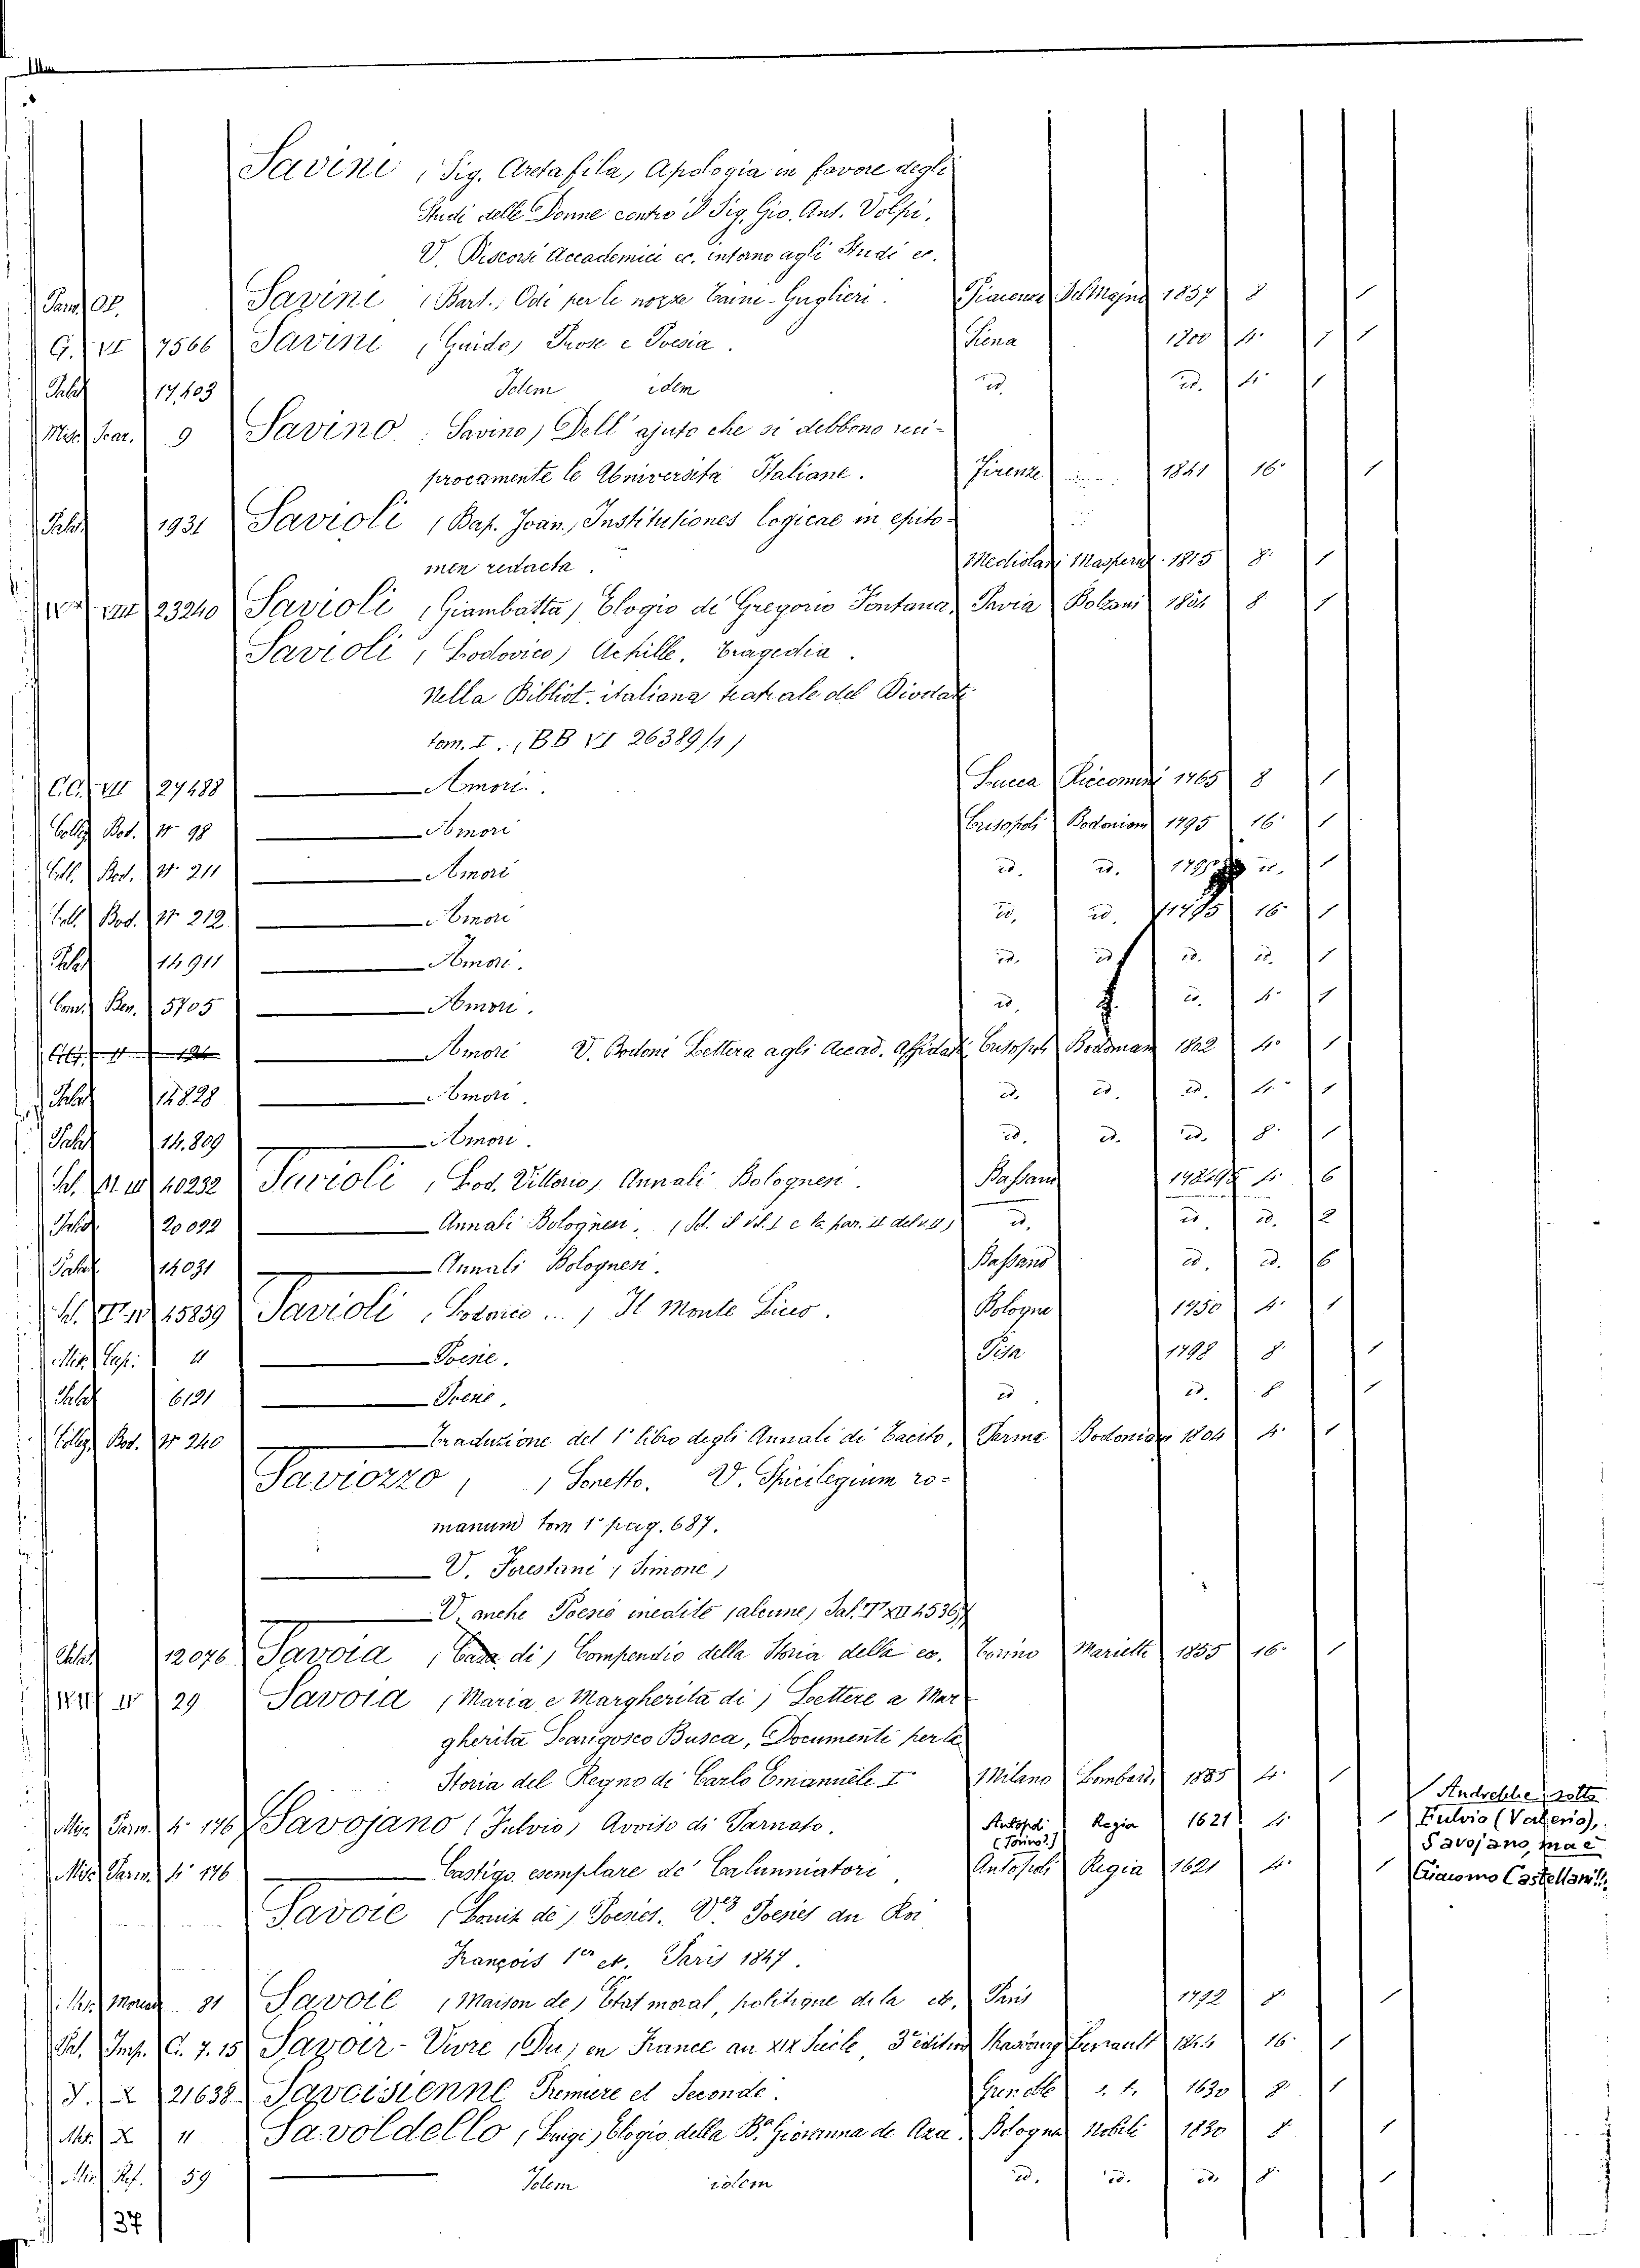 Savini, (Sig. Aretafila) Apologia in favore degli
Studi delle Donne contro il Sig. Gio. Ant. Volpi,
V. Discorsi Accademici ec. intorno agli Studi ec.
Savini (Bart.) Odi per le nozze Caini-Guglieri. Piacenza Del Majno 1857 8 1
G. VI 7566 Savini (Guido) Prose e Poesia. Siena 1800 4. 1 1
Palat 17,403 Idem idem id. id. 4. 1
9 Savino (Savino) Dell' ajuto che si debbono reci-
procamente le Università Italiane. Firenze 1841 16. 1
Palat 1931 Savioli (Bap. Joan.) Institutiones logicae in epito-
men redacta. Mediolani Maspero 1815 8. 1
VIII 23240 Savioli (Giambatta) Elogio di Gregorio Fontana. Pavia Bolzani 1804 8 1
Savioli (Lodovico) Achille. Tragedia.
Nella Bibliot. italiana teatrale del Diodati
tom. I. (BB VI 26389/1)
CC. VII 27488 Amori. Lucca Riccomini 1765 8 1
Collez Bod. N° 98 Amori Crisopoli Bodoniani 1795 16. 1
Coll. Bod. N° 211 Amori id. id. 1795 id. 1
Coll. Bod. N° 212 Amori id. id. 1795 16. 1
Palat 14911 Amori. id. id. id. id. 1
Ben. 5705 Amori. id. id. 4. 1
Amori V. Bodoni Lettera agli Accad. Affidati. Crisopoli Bodoniani 1802 4. 1
Palat 14828 Amori. id. id. id. 4. 1
Palat 14,809 Amori. id. id. id. 8. 1
40232 Savioli (Lod. Vittorio) Annali Bolognesi. Bassano 4. 6
Palat 20092 Annali Bolognesi. id. id. id. 2
Palat 14031 Annali Bolognesi. Bassano id. id. 6
15839 Savioli (Lodovico ...) Il Monte Liceo. Bologna 1750 4. 1
11 Poesie. Pisa 1798 8. 1
Palat 6121 Poesie. id id. 8 1
Collez. Bod. N° 240 Traduzione del 1° libro degli Annali di Tacito. Parma Bodoniani 1804 4. 1
Saviozzo ( ) Sonetto. V. Spicilegium ro-
manum tom 1° pag. 687.
V. Forestani (Simone)
V. anche Poesie inedite (alcune)
Palat 12076 Savoia (Casa di) Compendio della Storia della ec. Torino Marietti 1855 16. 1
IV 29 Savoia (Maria e Margherita di) Lettere a Mar-
gherita Langosco Busca, Documenti per la
Storia del Regno di Carlo Emanuele I. Milano Bombard. 1885 4. 1
Mis. Parm. 4. 176 Savojano (Fulvio) Avviso di Parnaso. Antopoli (Torino?) Regia 1621 4. 1
Andrebbe sotto
Fulvio (Valerio),
Savojano, ma è
Giacomo Castellani!!
Mis. Parm. 4. 176 Castigo esemplare de' Calunniatori Antopoli Regia 1621 4. 1
Savoie (Louise de) Poesies. V. Poesies du Roi
François 1er et. Paris 1847.
81 Savoie (Maison de) Etat moral, politique de la etc. Paris 1792 8. 1
Pal. Imp. C. 7. 15 Savoir-Vivre (Du) en France au XIX Siècle 3e edition 16. 1
J. X 21638 Savoisienne Premiere et Seconde. Grenoble s. t. 1630 8. 1
X 11 Savoldello (Luigi) Elogio della Ba. Giovanna de Aza. Bologna Nobili 1830 8 1
59 Idem idem id. id. id. 8. 1
37